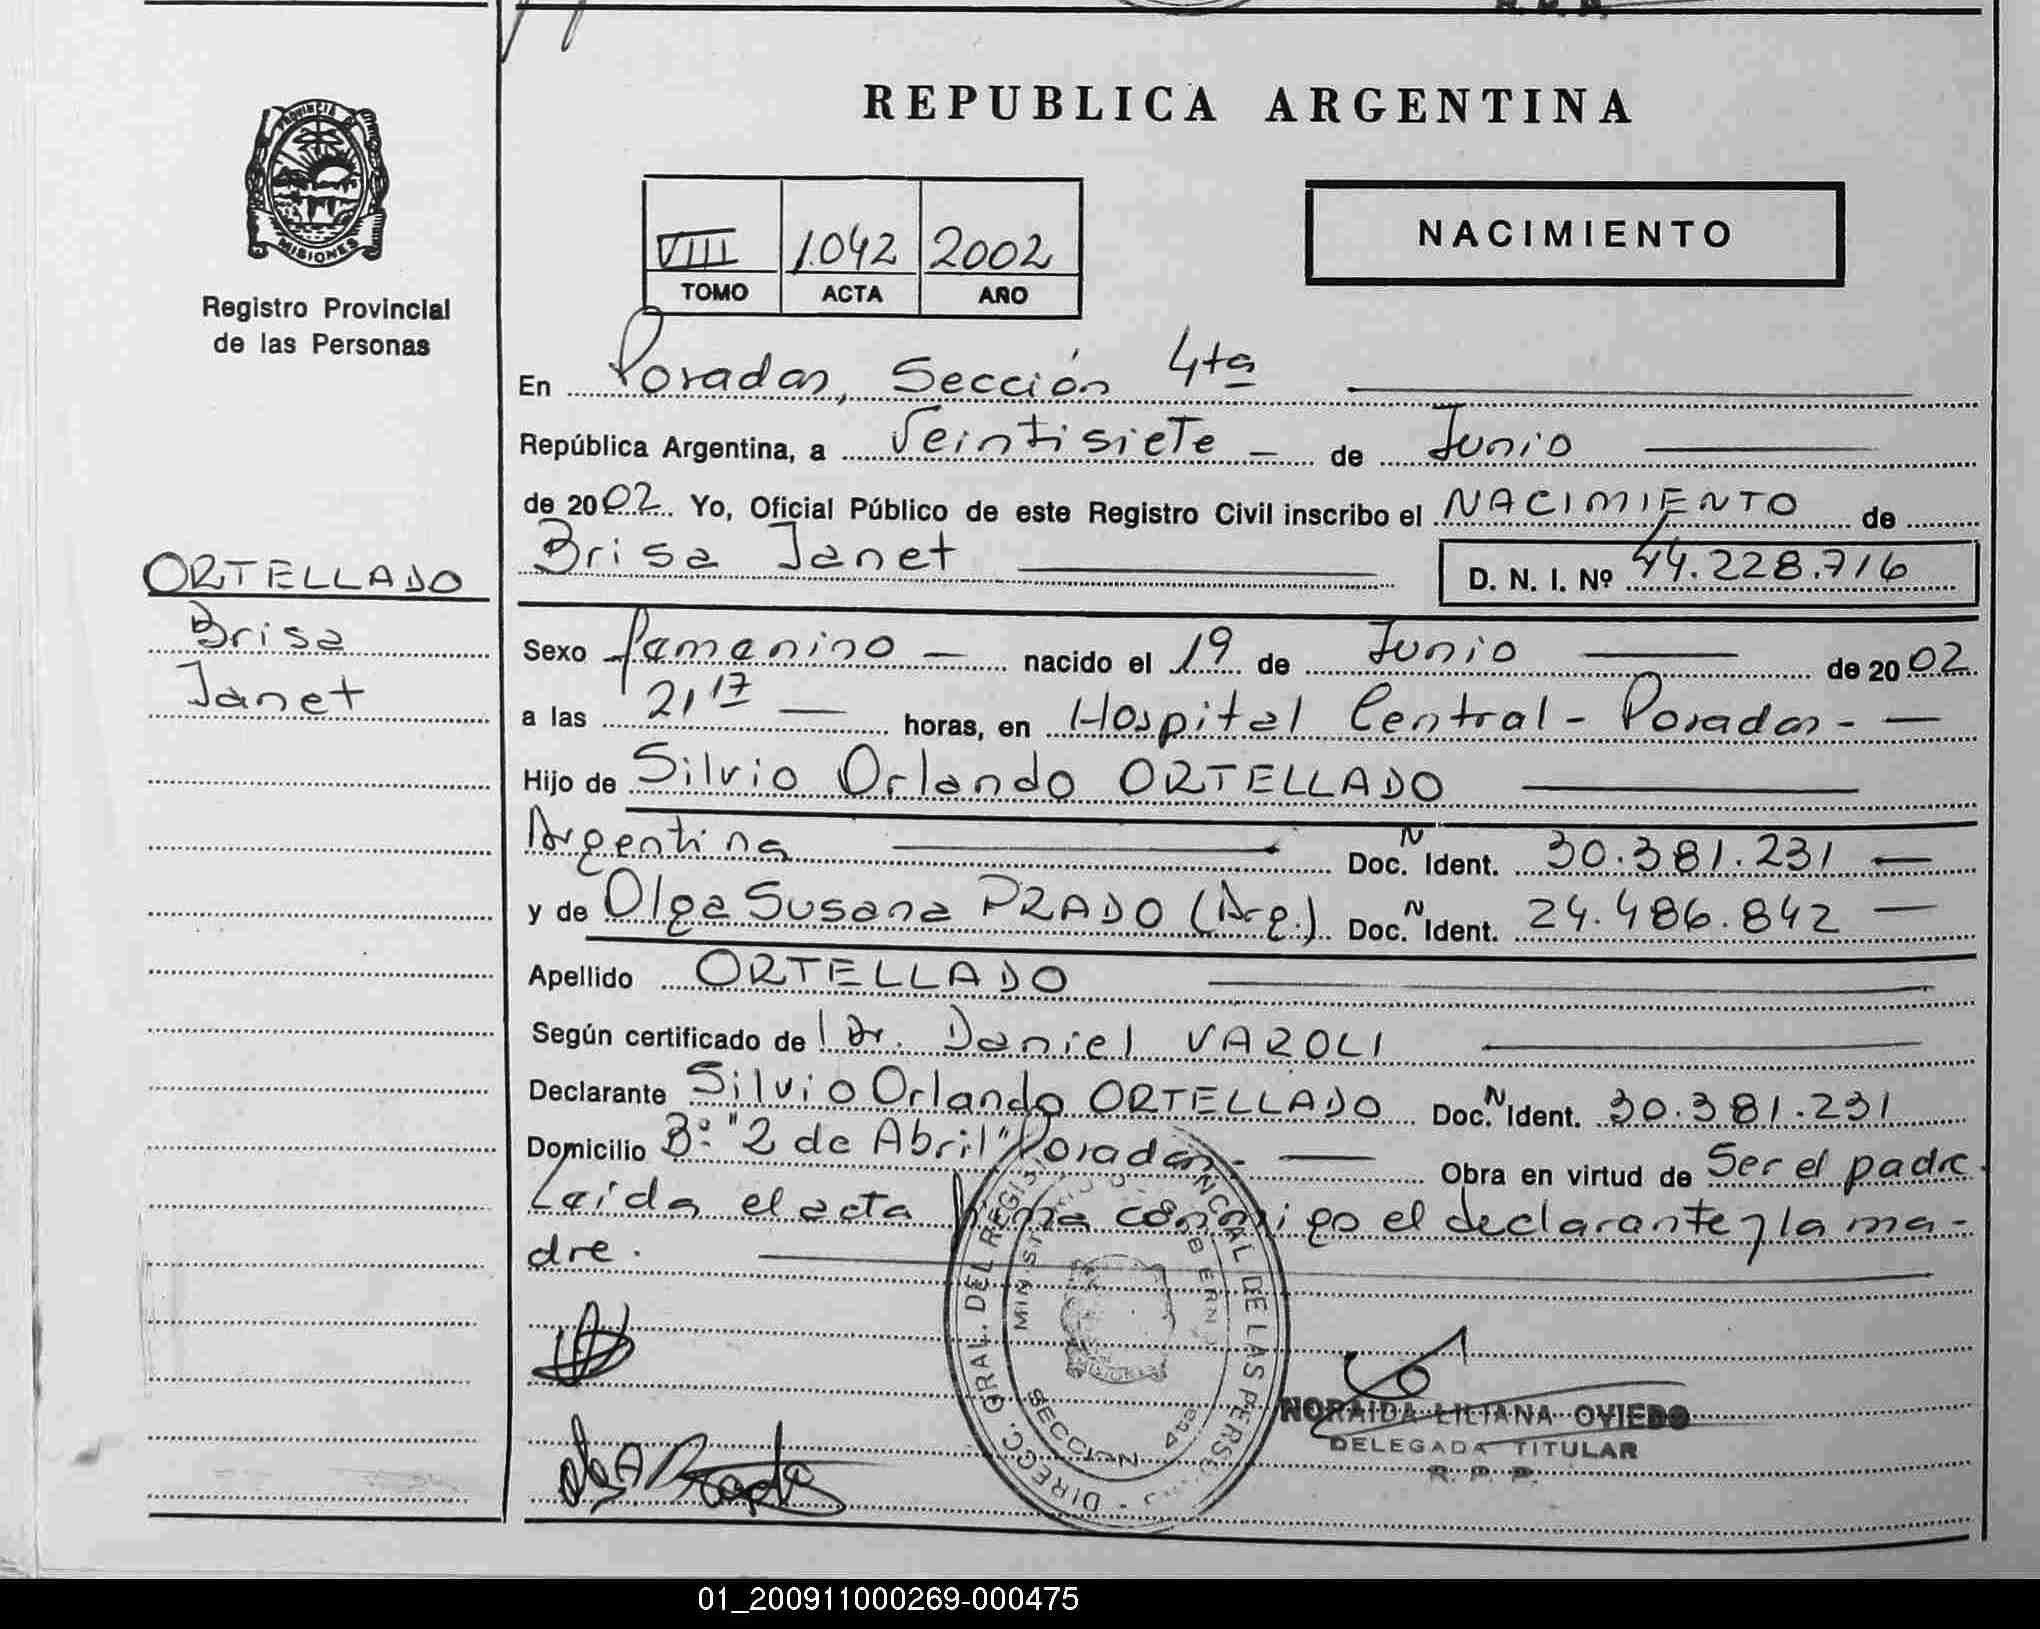 REPUBLICA ARGENTINA
PROVINCIA DE
MISIONES
Registro Provincial
de las Personas
VIII 1.042 2002
TOMO ACTA AÑO
NACIMIENTO
En Posadas, Sección 4ta
República Argentina, a Veintisiete de Junio
de 2002. Yo, Oficial Público de este Registro Civil inscribo el NACIMIENTO de
Brisa Janet D. N. I. Nº 44.228.716
ORTELLADO
Brisa
Janet
Sexo femenino nacido el 19 de Junio de 2002.
a las 21,17 horas, en Hospital Central - Posadas -
Hijo de Silvio Orlando ORTELLADO
Argentina Doc. N Ident. 30.381.231
y de Olga Susana PRADO (Arg.) Doc. N Ident. 24.486.842
Apellido ORTELLADO
Según certificado de l Dr. Daniel VAROLI
Declarante Silvio Orlando ORTELLADO Doc. N Ident. 30.381.231
Domicilio Bº "2 de Abril" Posadas - Obra en virtud de Ser el padre.
Leída el acta firma conmigo el declarante y la ma-
dre.
DIRECC. GRAL. DEL REGIS NCIAL DE LAS PERSO
SECCION 4ta
NORAIDA LILIANA OVIEDO
DELEGADA TITULAR
R. P. P.
01_200911000269-000475